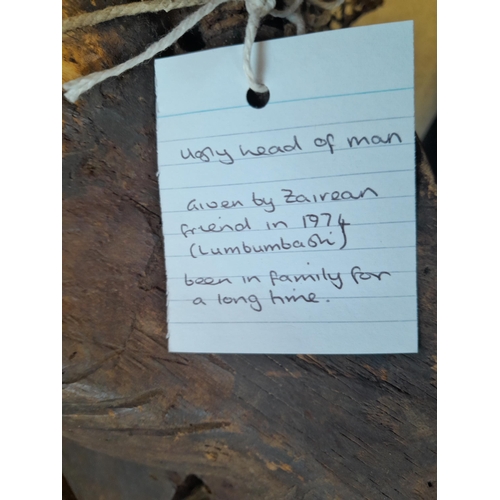 ugly head of man
Given by Zairean
friend in 1974
(Lumbumbashi)
been in family for
a long time.